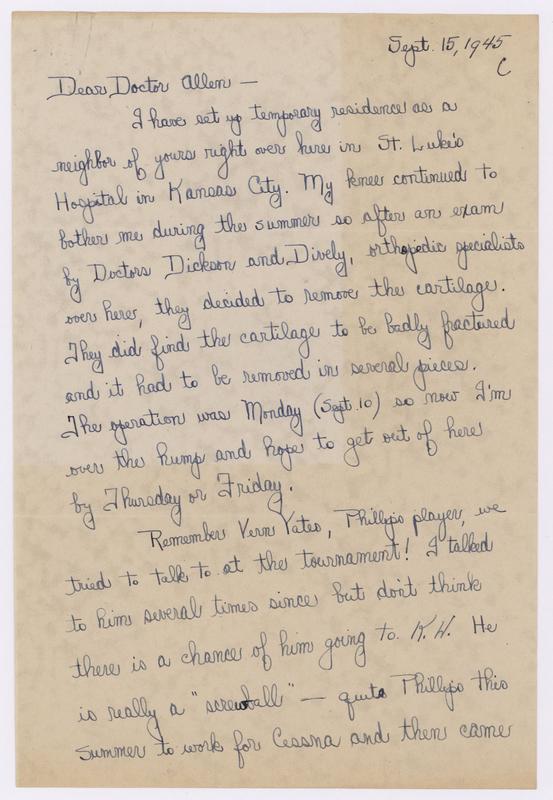 Sept. 15, 1945
C
Dear Doctor Allen —
I have set up temporary residence as a
neighbor of yours right over here in St. Luke's
Hospital in Kansas City. My knee continued to
bother me during the summer so after an exam
by Doctors Dickson and Dively, orthopedic specialists
over here, they decided to remove the cartilage.
They did find the cartilage to be badly fractured
and it had to be removed in several pieces.
The operation was Monday (Sept. 10) so now I'm
over the hump and hope to get out of here
by Thursday or Friday.
Remember Vern Yates, Phillips player, we
tried to talk to at the tournament! I talked
to him several times since but don't think
there is a chance of him going to K.U. He
is really a "screwball" — quits Phillips this
summer to work for Cessna and then came